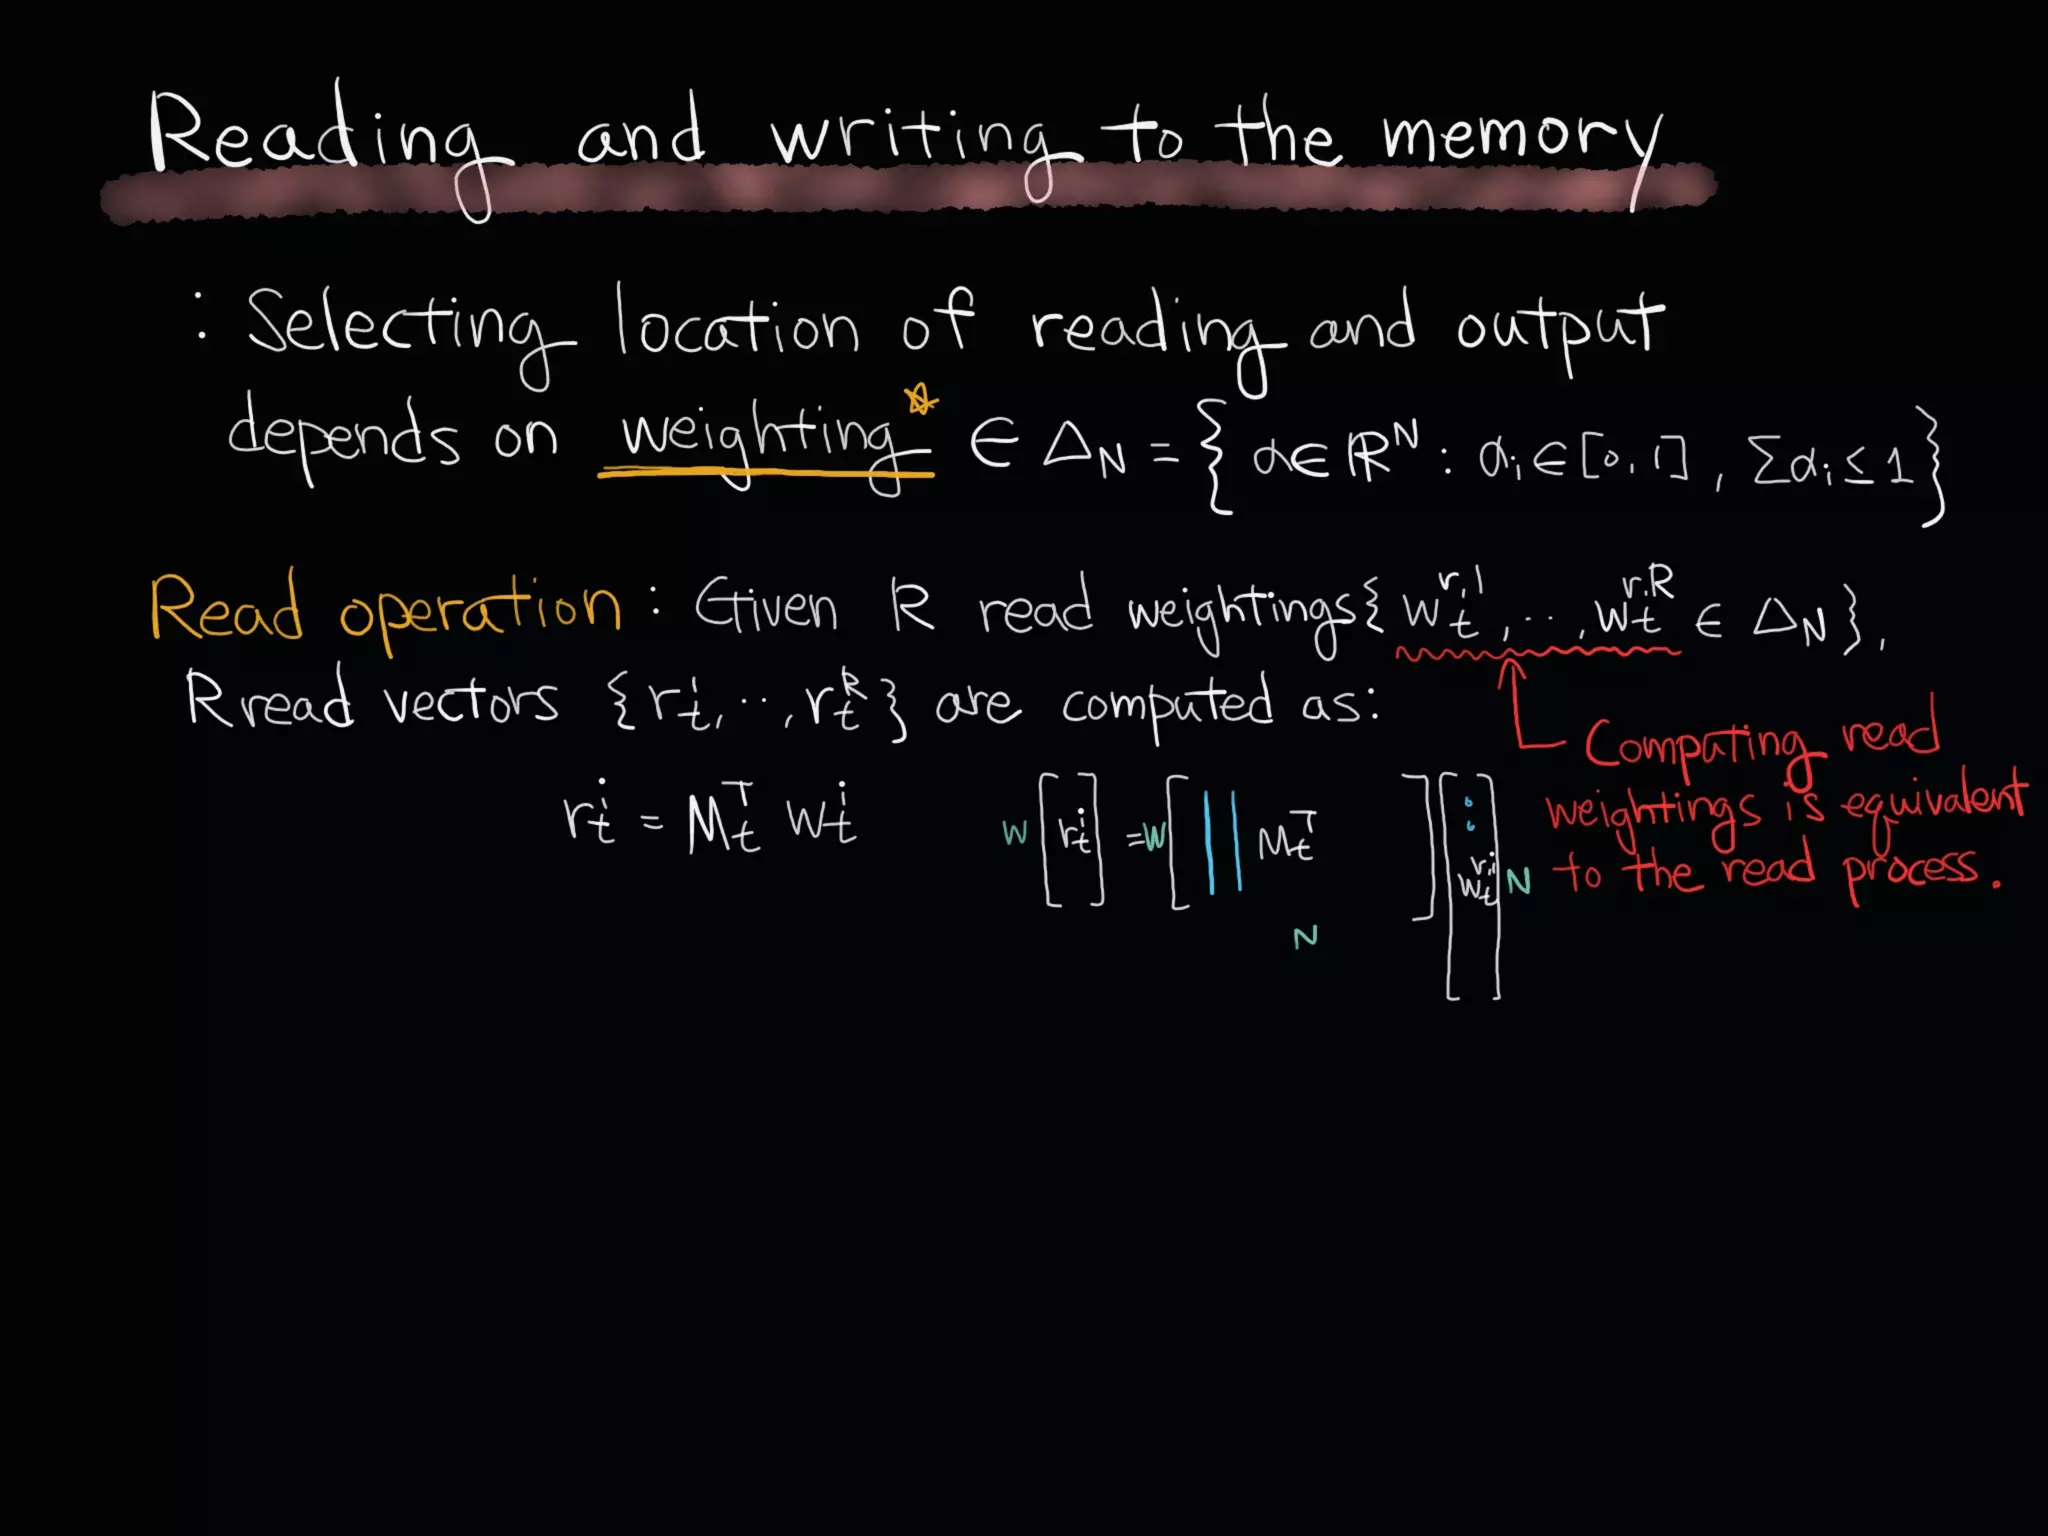 Reading and writing to the memory
: Selecting location of reading and output
depends on weighting* ∈ Δ_N = { α ∈ ℝ^N : α_i ∈ [0, 1], Σα_i ≤ 1 }
Read operation : Given R read weightings { w_t^{r,1}, ··, w_t^{r,R} ∈ Δ_N },
R read vectors { r_t^1, ··, r_t^R } are computed as:
Computing read
weightings is equivalent
to the read process.
r_t^i = M_t^T w_t^i
W [ r_t^i ] = W [ M_t^T ] [ w_t^{r,i} ] N
N